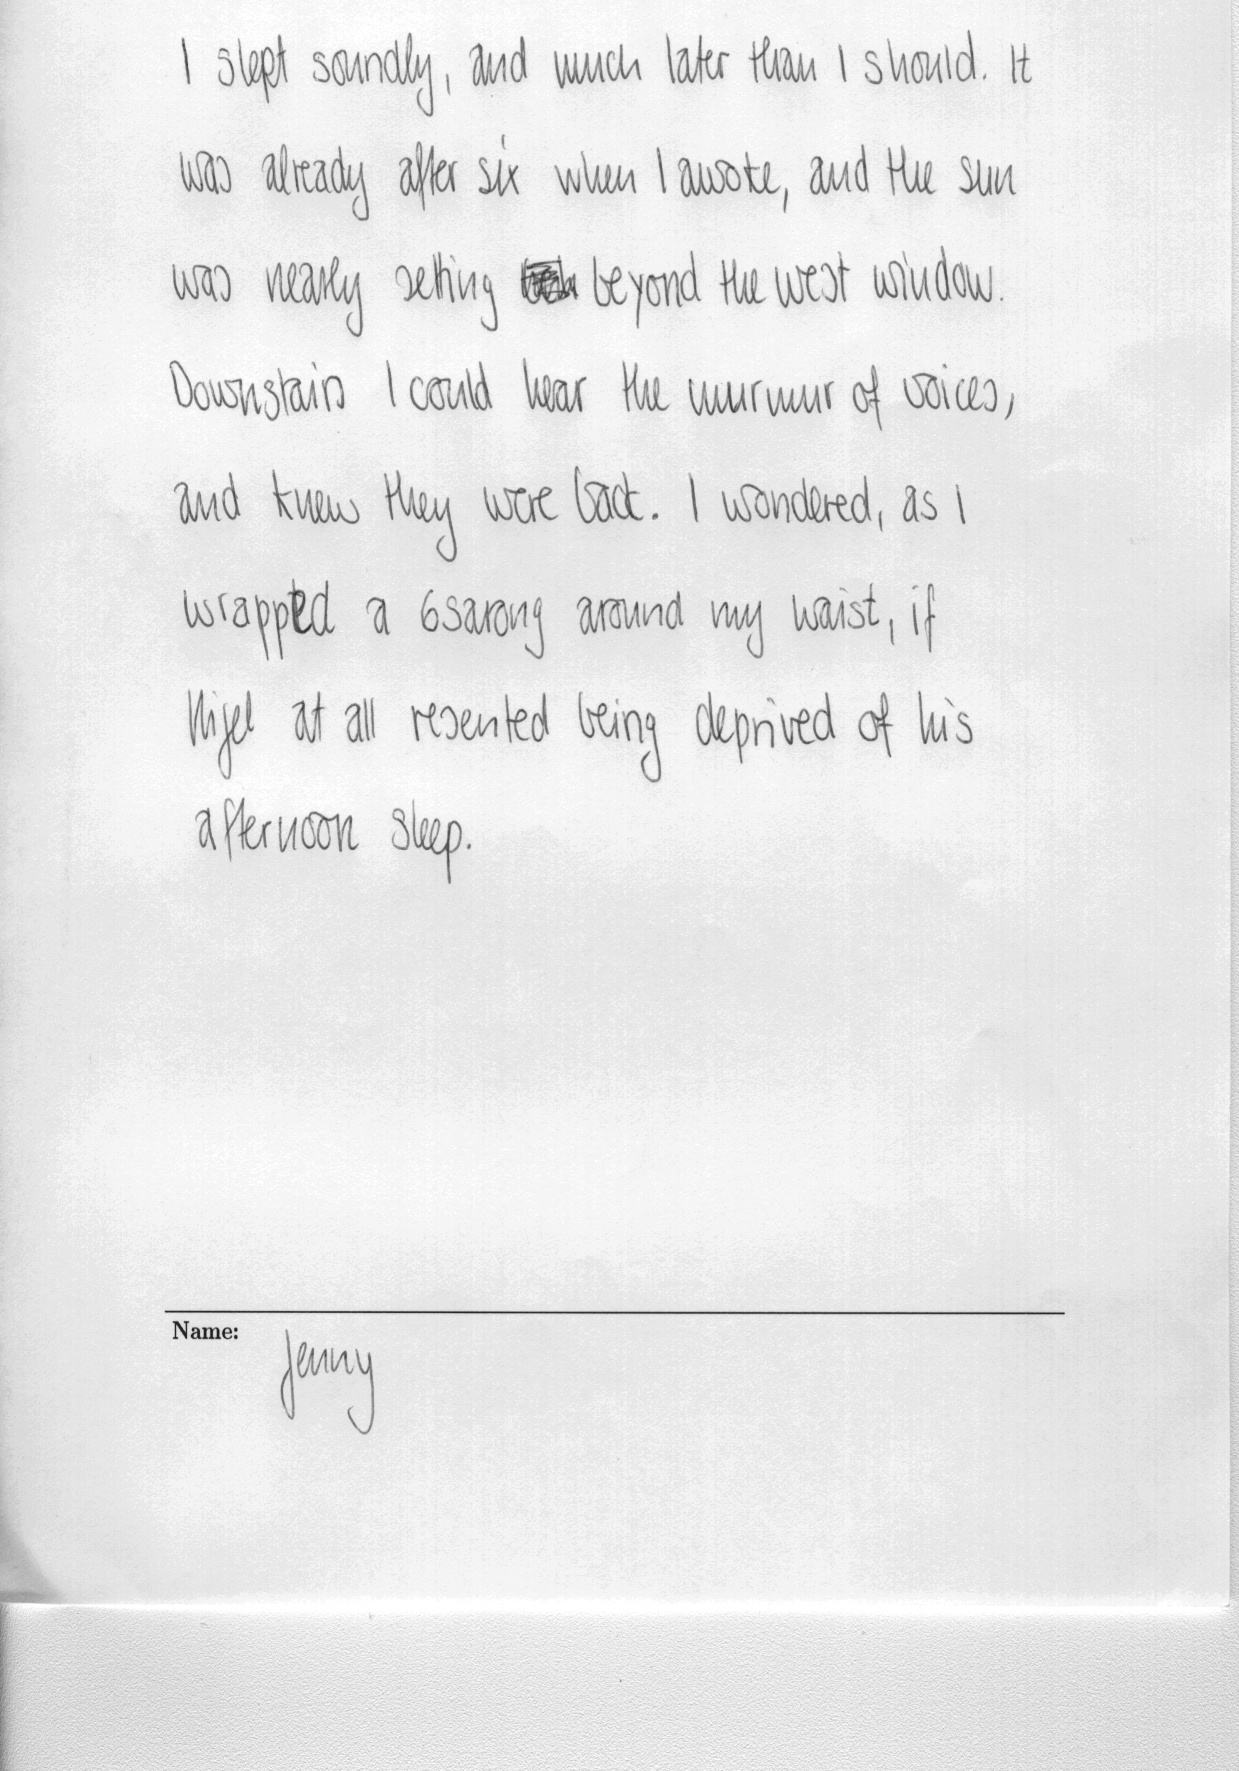 I slept soundly, and much later than I should. It
was already after six when I awoke, and the sun
was nearly setting beyond the west window.
Downstairs I could hear the murmur of voices,
and knew they were back. I wondered, as I
wrapped a 6sarong around my waist, if
Nigel at all resented being deprived of his
afternoon sleep.
Name:
Jenny